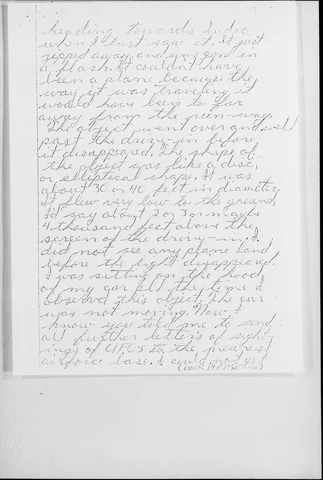 heading towards Indio
when I last saw it. It just
zipped away and was gone in
a flash. It couldn't have
been a plane because the
way it was traveling it
would have been to far
away from the run-way.
The object went over and well
past the drive-in before
it disappeared. The shape of
the object was like a disc,
or elliptical shape. It was
about 30 or 40 feet in diameter
It flew very low to the ground,
I'd say about 2 or 3 or maybe
4 thousand feet above the
screen of the drive-in. I
did not see any plane land
before the light disappeared.
I was sitting on the hood
of my car all the time I
observed this object. The car
was not moving. Now I
know you told me to send
all further letters of sight-
ings of UFO's to the nearest
airforce base. I could not get